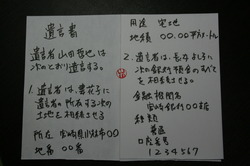 遺言書
遺言者山田哲也は
次のとおり遺言する。
1. 遺言者は、豊花子に
遺言者の所有する次の
土地を相続させる
所在 宮崎県川org市00
地番 00番
用途 宅地
地積 00.00平方メートル
2. 遺言者は、長女よし子に
次の銀行預金のすべて
を相続させる。
金融機関名
宮崎銀行00本店
種類
普通
口座番号
1234567